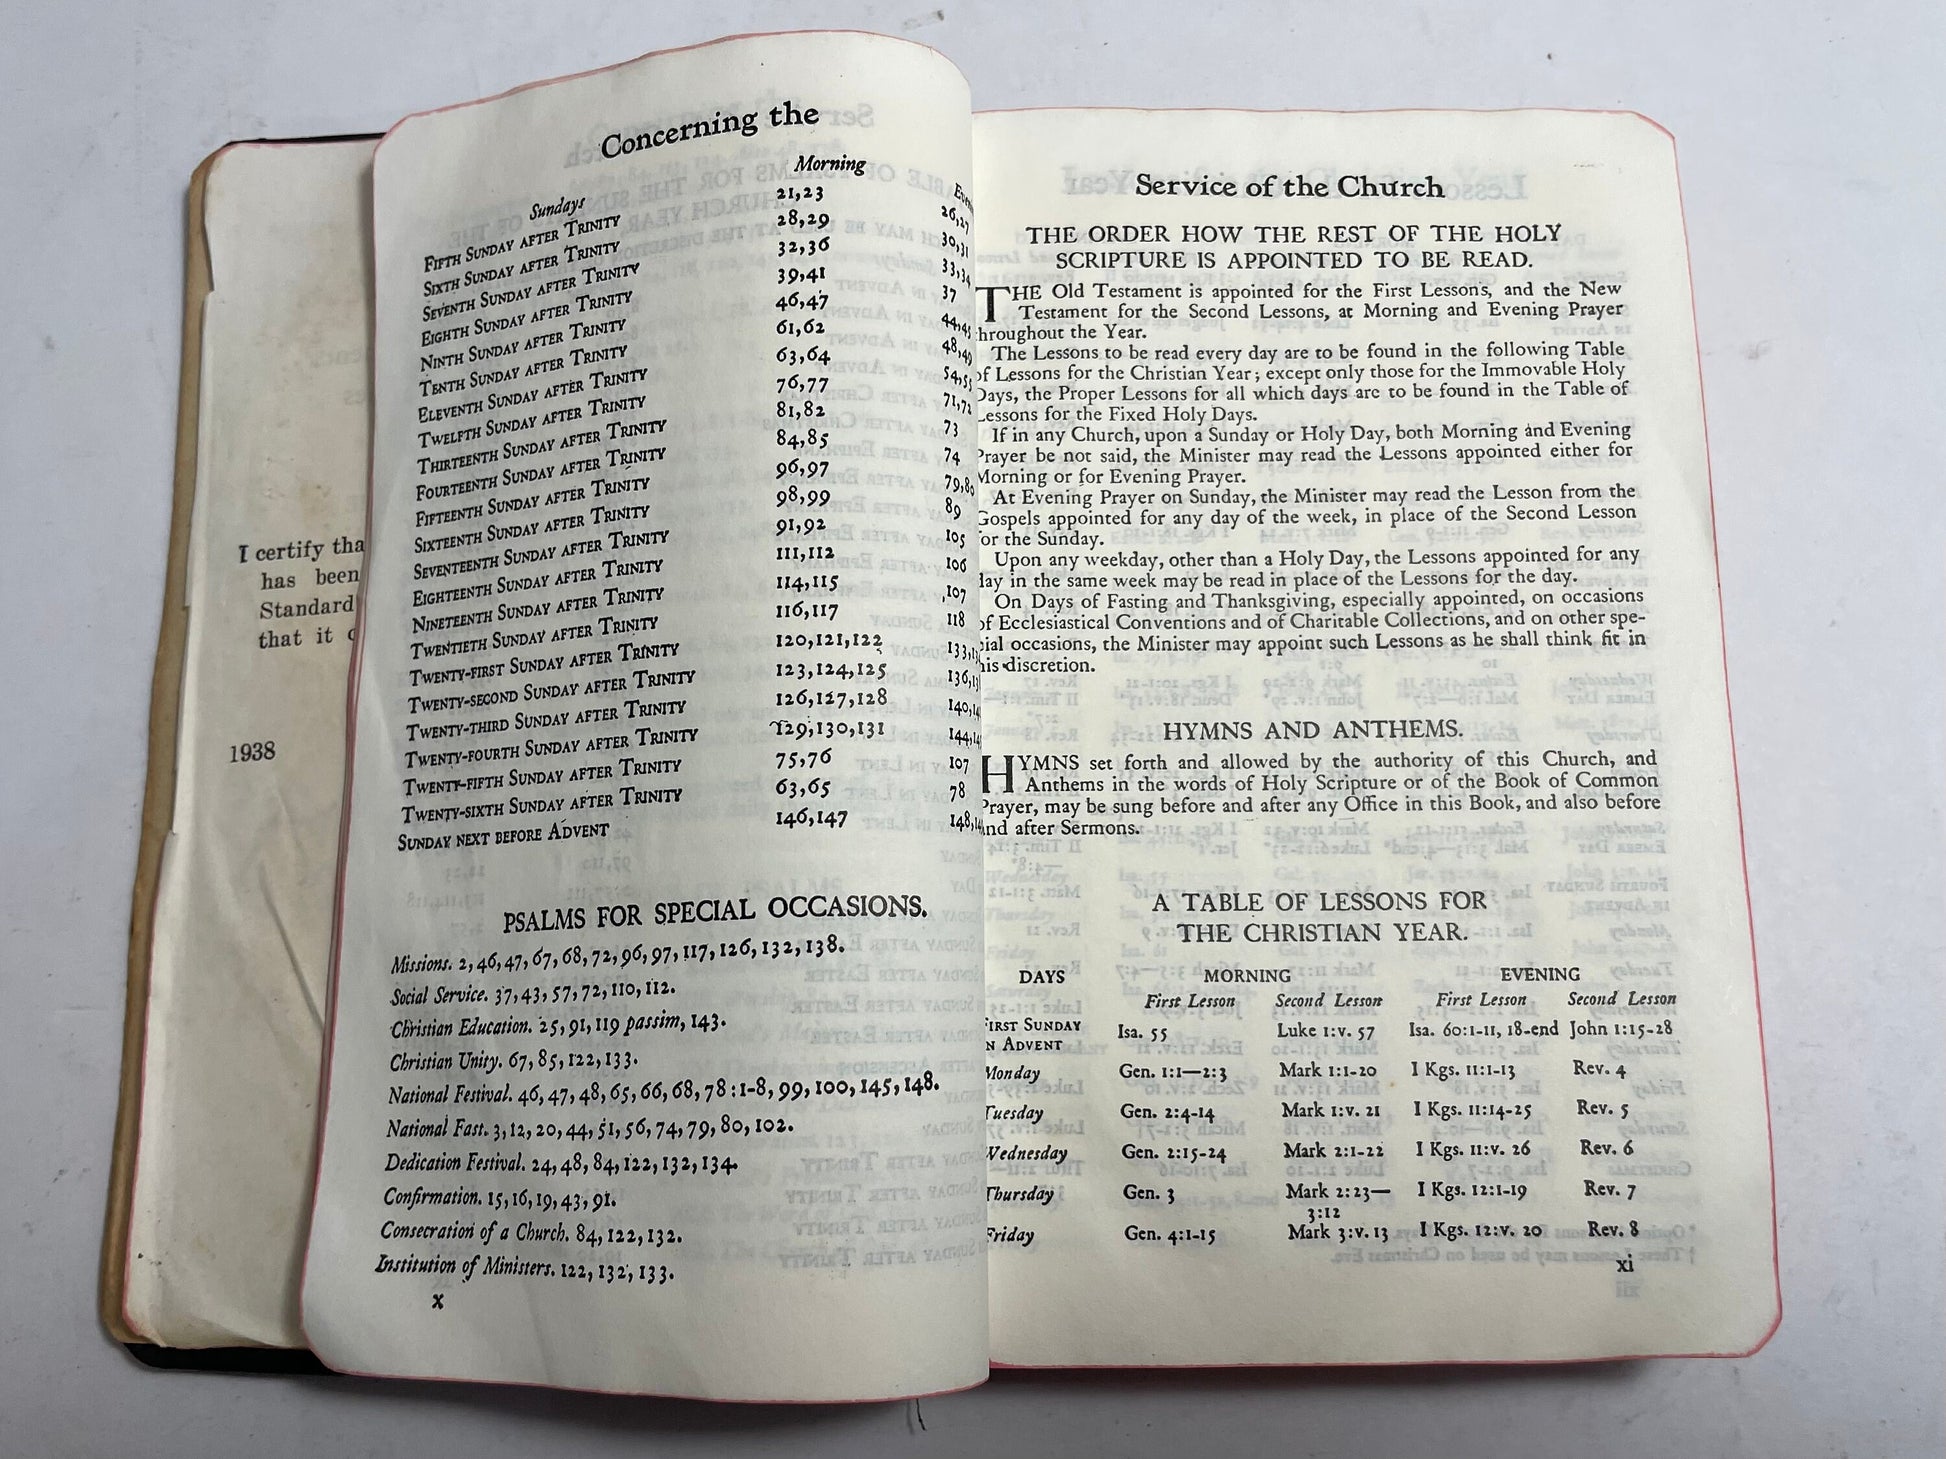 I certify tha
has been
Standard
that it c
1938
Concerning the
Sundays Morning Even
Fifth Sunday after Trinity 21,23 26,27
Sixth Sunday after Trinity 28,29 30,31
Seventh Sunday after Trinity 32,36 33,34
Eighth Sunday after Trinity 39,41 37
Ninth Sunday after Trinity 46,47 44,45
Tenth Sunday after Trinity 61,62 48,49
Eleventh Sunday after Trinity 63,64 54,55
Twelfth Sunday after Trinity 76,77 71,72
Thirteenth Sunday after Trinity 81,82 73
Fourteenth Sunday after Trinity 84,85 74
Fifteenth Sunday after Trinity 96,97 79,80
Sixteenth Sunday after Trinity 98,99 89
Seventeenth Sunday after Trinity 91,92 105
Eighteenth Sunday after Trinity 111,112 106
Nineteenth Sunday after Trinity 114,115 107
Twentieth Sunday after Trinity 116,117 118
Twenty-first Sunday after Trinity 120,121,122 133,13
Twenty-second Sunday after Trinity 123,124,125 136,13
Twenty-third Sunday after Trinity 126,127,128 140,14
Twenty-fourth Sunday after Trinity 129,130,131 144,14
Twenty-fifth Sunday after Trinity 75,76 107
Twenty-sixth Sunday after Trinity 63,65 78
Sunday next before Advent 146,147 148,14
PSALMS FOR SPECIAL OCCASIONS.
Missions. 2, 46, 47, 67, 68, 72, 96, 97, 117, 126, 132, 138.
Social Service. 37, 43, 57, 72, 110, 112.
Christian Education. 25, 91, 119 passim, 143.
Christian Unity. 67, 85, 122, 133.
National Festival. 46, 47, 48, 65, 66, 68, 78:1-8, 99, 100, 145, 148.
National Fast. 3, 12, 20, 44, 51, 56, 74, 79, 80, 102.
Dedication Festival. 24, 48, 84, 122, 132, 134.
Confirmation. 15, 16, 19, 43, 91.
Consecration of a Church. 84, 122, 132.
Institution of Ministers. 122, 132, 133.
x
Service of the Church
THE ORDER HOW THE REST OF THE HOLY
SCRIPTURE IS APPOINTED TO BE READ.
THE Old Testament is appointed for the First Lessons, and the New
Testament for the Second Lessons, at Morning and Evening Prayer
hroughout the Year.
The Lessons to be read every day are to be found in the following Table
of Lessons for the Christian Year; except only those for the Immovable Holy
Days, the Proper Lessons for all which days are to be found in the Table of
Lessons for the Fixed Holy Days.
If in any Church, upon a Sunday or Holy Day, both Morning and Evening
Prayer be not said, the Minister may read the Lessons appointed either for
Morning or for Evening Prayer.
At Evening Prayer on Sunday, the Minister may read the Lesson from the
Gospels appointed for any day of the week, in place of the Second Lesson
for the Sunday.
Upon any weekday, other than a Holy Day, the Lessons appointed for any
day in the same week may be read in place of the Lessons for the day.
On Days of Fasting and Thanksgiving, especially appointed, on occasions
of Ecclesiastical Conventions and of Charitable Collections, and on other spe-
cial occasions, the Minister may appoint such Lessons as he shall think fit in
his discretion.
HYMNS AND ANTHEMS.
HYMNS set forth and allowed by the authority of this Church, and
Anthems in the words of Holy Scripture or of the Book of Common
Prayer, may be sung before and after any Office in this Book, and also before
and after Sermons.
A TABLE OF LESSONS FOR
THE CHRISTIAN YEAR.
DAYS MORNING EVENING
First Lesson Second Lesson First Lesson Second Lesson
First Sunday Isa. 55 Luke 1:v. 57 Isa. 60:1-11, 18-end John 1:15-28
n Advent
Monday Gen. 1:1—2:3 Mark 1:1-20 I Kgs. 11:1-13 Rev. 4
Tuesday Gen. 2:4-14 Mark 1:v. 21 I Kgs. 11:14-25 Rev. 5
Wednesday Gen. 2:15-24 Mark 2:1-22 I Kgs. 11:v. 26 Rev. 6
Thursday Gen. 3 Mark 2:23— I Kgs. 12:1-19 Rev. 7
3:12
Friday Gen. 4:1-15 Mark 3:v. 13 I Kgs. 12:v. 20 Rev. 8
xi